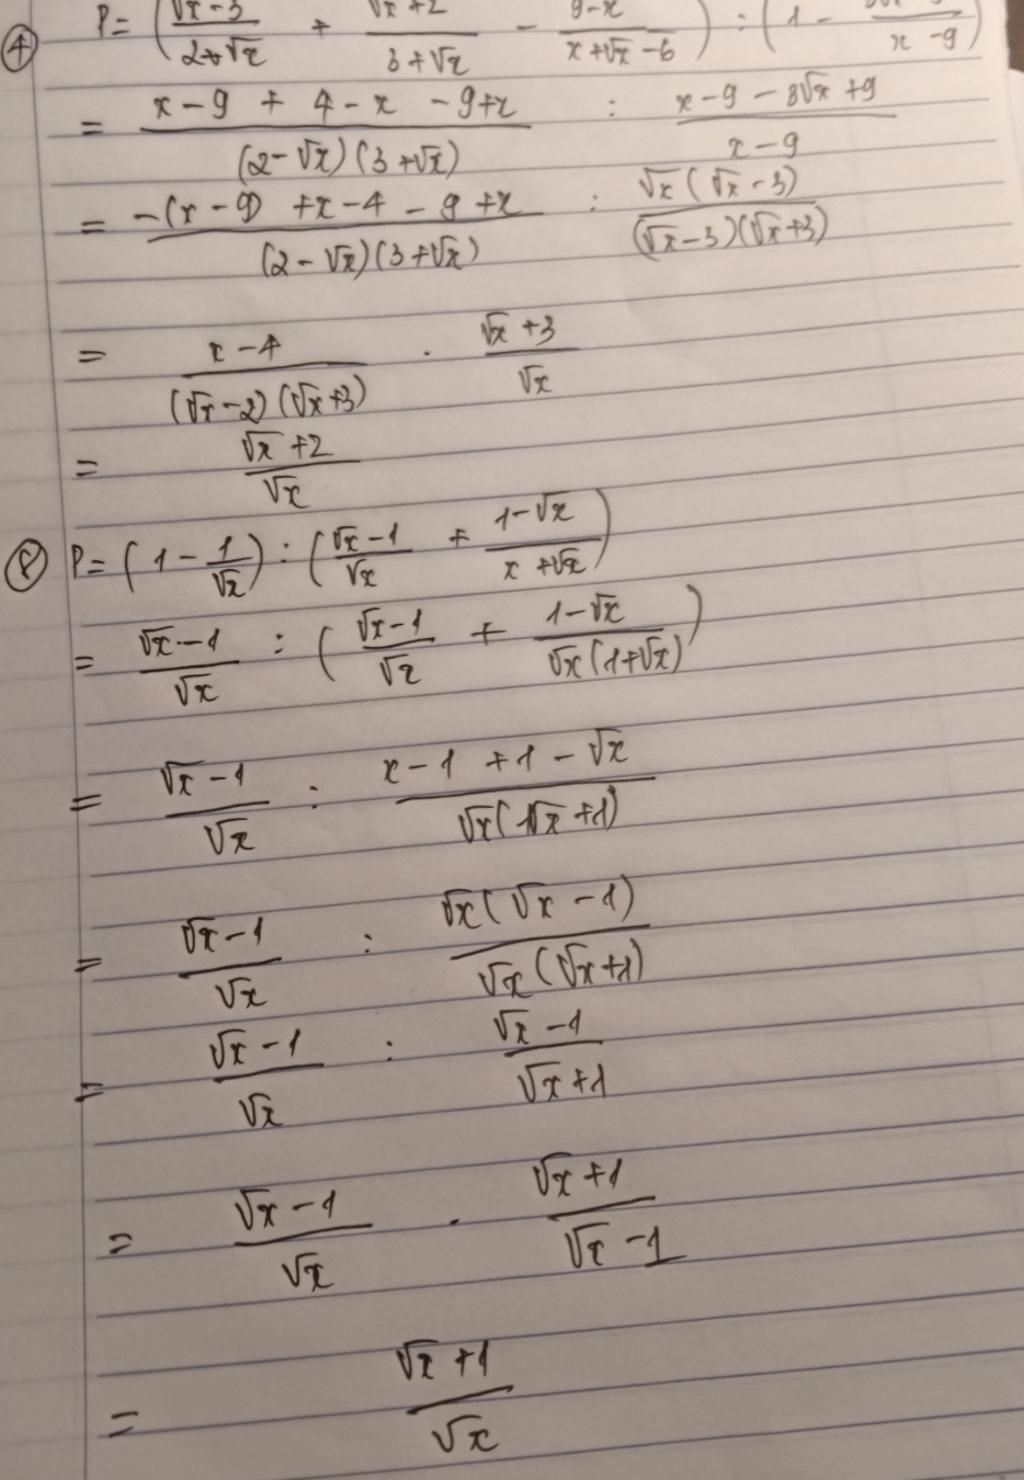 ④ P = ( (√x - 3)/(2 + √x) + (√x + 2)/(3 + √x) - (9 - x)/(x + √x - 6) ) : ( 1 - /(x - 9) )
= (x - 9 + 4 - x - 9 + x)/((2 - √x)(3 + √x)) : (x - 9 - 3√x + 9)/(x - 9)
= (-(x - 9) + x - 4 - 9 + x)/((2 - √x)(3 + √x)) : (√x(√x - 3))/((√x - 3)(√x + 3))
= (x - 4)/((√x - 2)(√x + 3)) . (√x + 3)/√x
= (√x + 2)/√x
⑧ P = ( 1 - 1/√x ) : ( (√x - 1)/√x + (1 - √x)/(x + √x) )
= (√x - 1)/√x : ( (√x - 1)/√x + (1 - √x)/(√x(1 + √x)) )
= (√x - 1)/√x : (x - 1 + 1 - √x)/(√x(√x + 1))
= (√x - 1)/√x : (√x(√x - 1))/(√x(√x + 1))
= (√x - 1)/√x : (√x - 1)/(√x + 1)
= (√x - 1)/√x . (√x + 1)/(√x - 1)
= (√x + 1)/√x